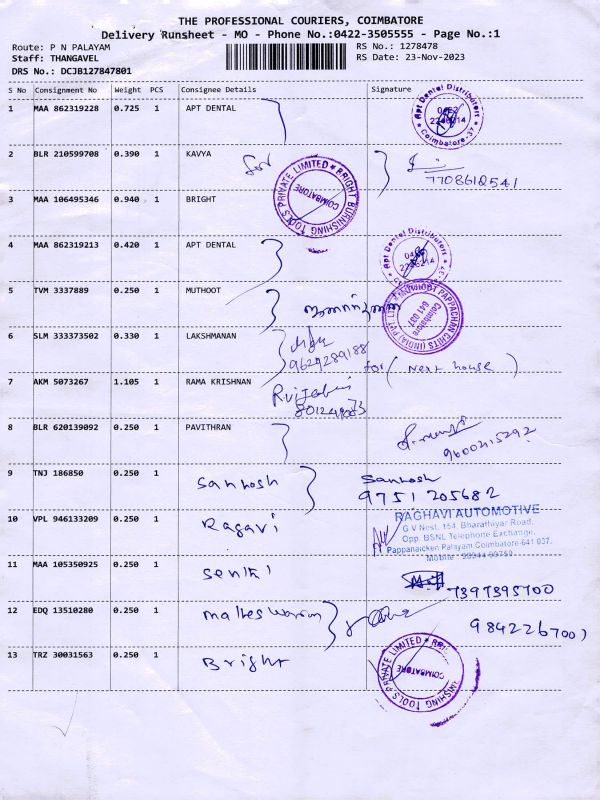 THE PROFESSIONAL COURIERS, COIMBATORE
Delivery Runsheet - MO - Phone No.:0422-3505555 - Page No.:1
Route: P N PALAYAM
RS No.: 1278478
Staff: THANGAVEL
RS Date: 23-Nov-2023
DRS No.: DCJB127847801
S No Consignment No Weight PCS Consignee Details Signature
1 MAA 862319228 0.725 1 APT DENTAL
Apt Dental Distributors
Coimbatore-37
2 BLR 210599708 0.390 1 KAVYA
for
7708612541
BRIGHT BURNISHING TOOLS PRIVATE LIMITED
COIMBATORE
3 MAA 106495346 0.940 1 BRIGHT
4 MAA 862319213 0.420 1 APT DENTAL
Apt Dental Distributors
5 TVM 3337889 0.250 1 MUTHOOT
MUTHOOT PAPPACHAN CHITS (INDIA) PVT LTD
Coimbatore
641 037
6 SLM 333373502 0.330 1 LAKSHMANAN
9629289188
for (Next house)
7 AKM 5073267 1.105 1 RAMA KRISHNAN
8 BLR 620139092 0.250 1 PAVITHRAN
9600215292
9 TNJ 186850 0.250 1 Sankosh
Sankosh
9751205682
10 VPL 946133209 0.250 1 Ragavi
RAGHAVI AUTOMOTIVE
G V Nest, 154, Bharathiyar Road,
Opp. BSNL Telephone Exchange,
Pappanaicken Palayam Coimbatore-641 037.
11 MAA 105350925 0.250 1
7397395700
12 EDQ 13510280 0.250 1
13 TRZ 30031563 0.250 1 Bright
TOOLS PRIVATE LIMITED
COIMBATORE